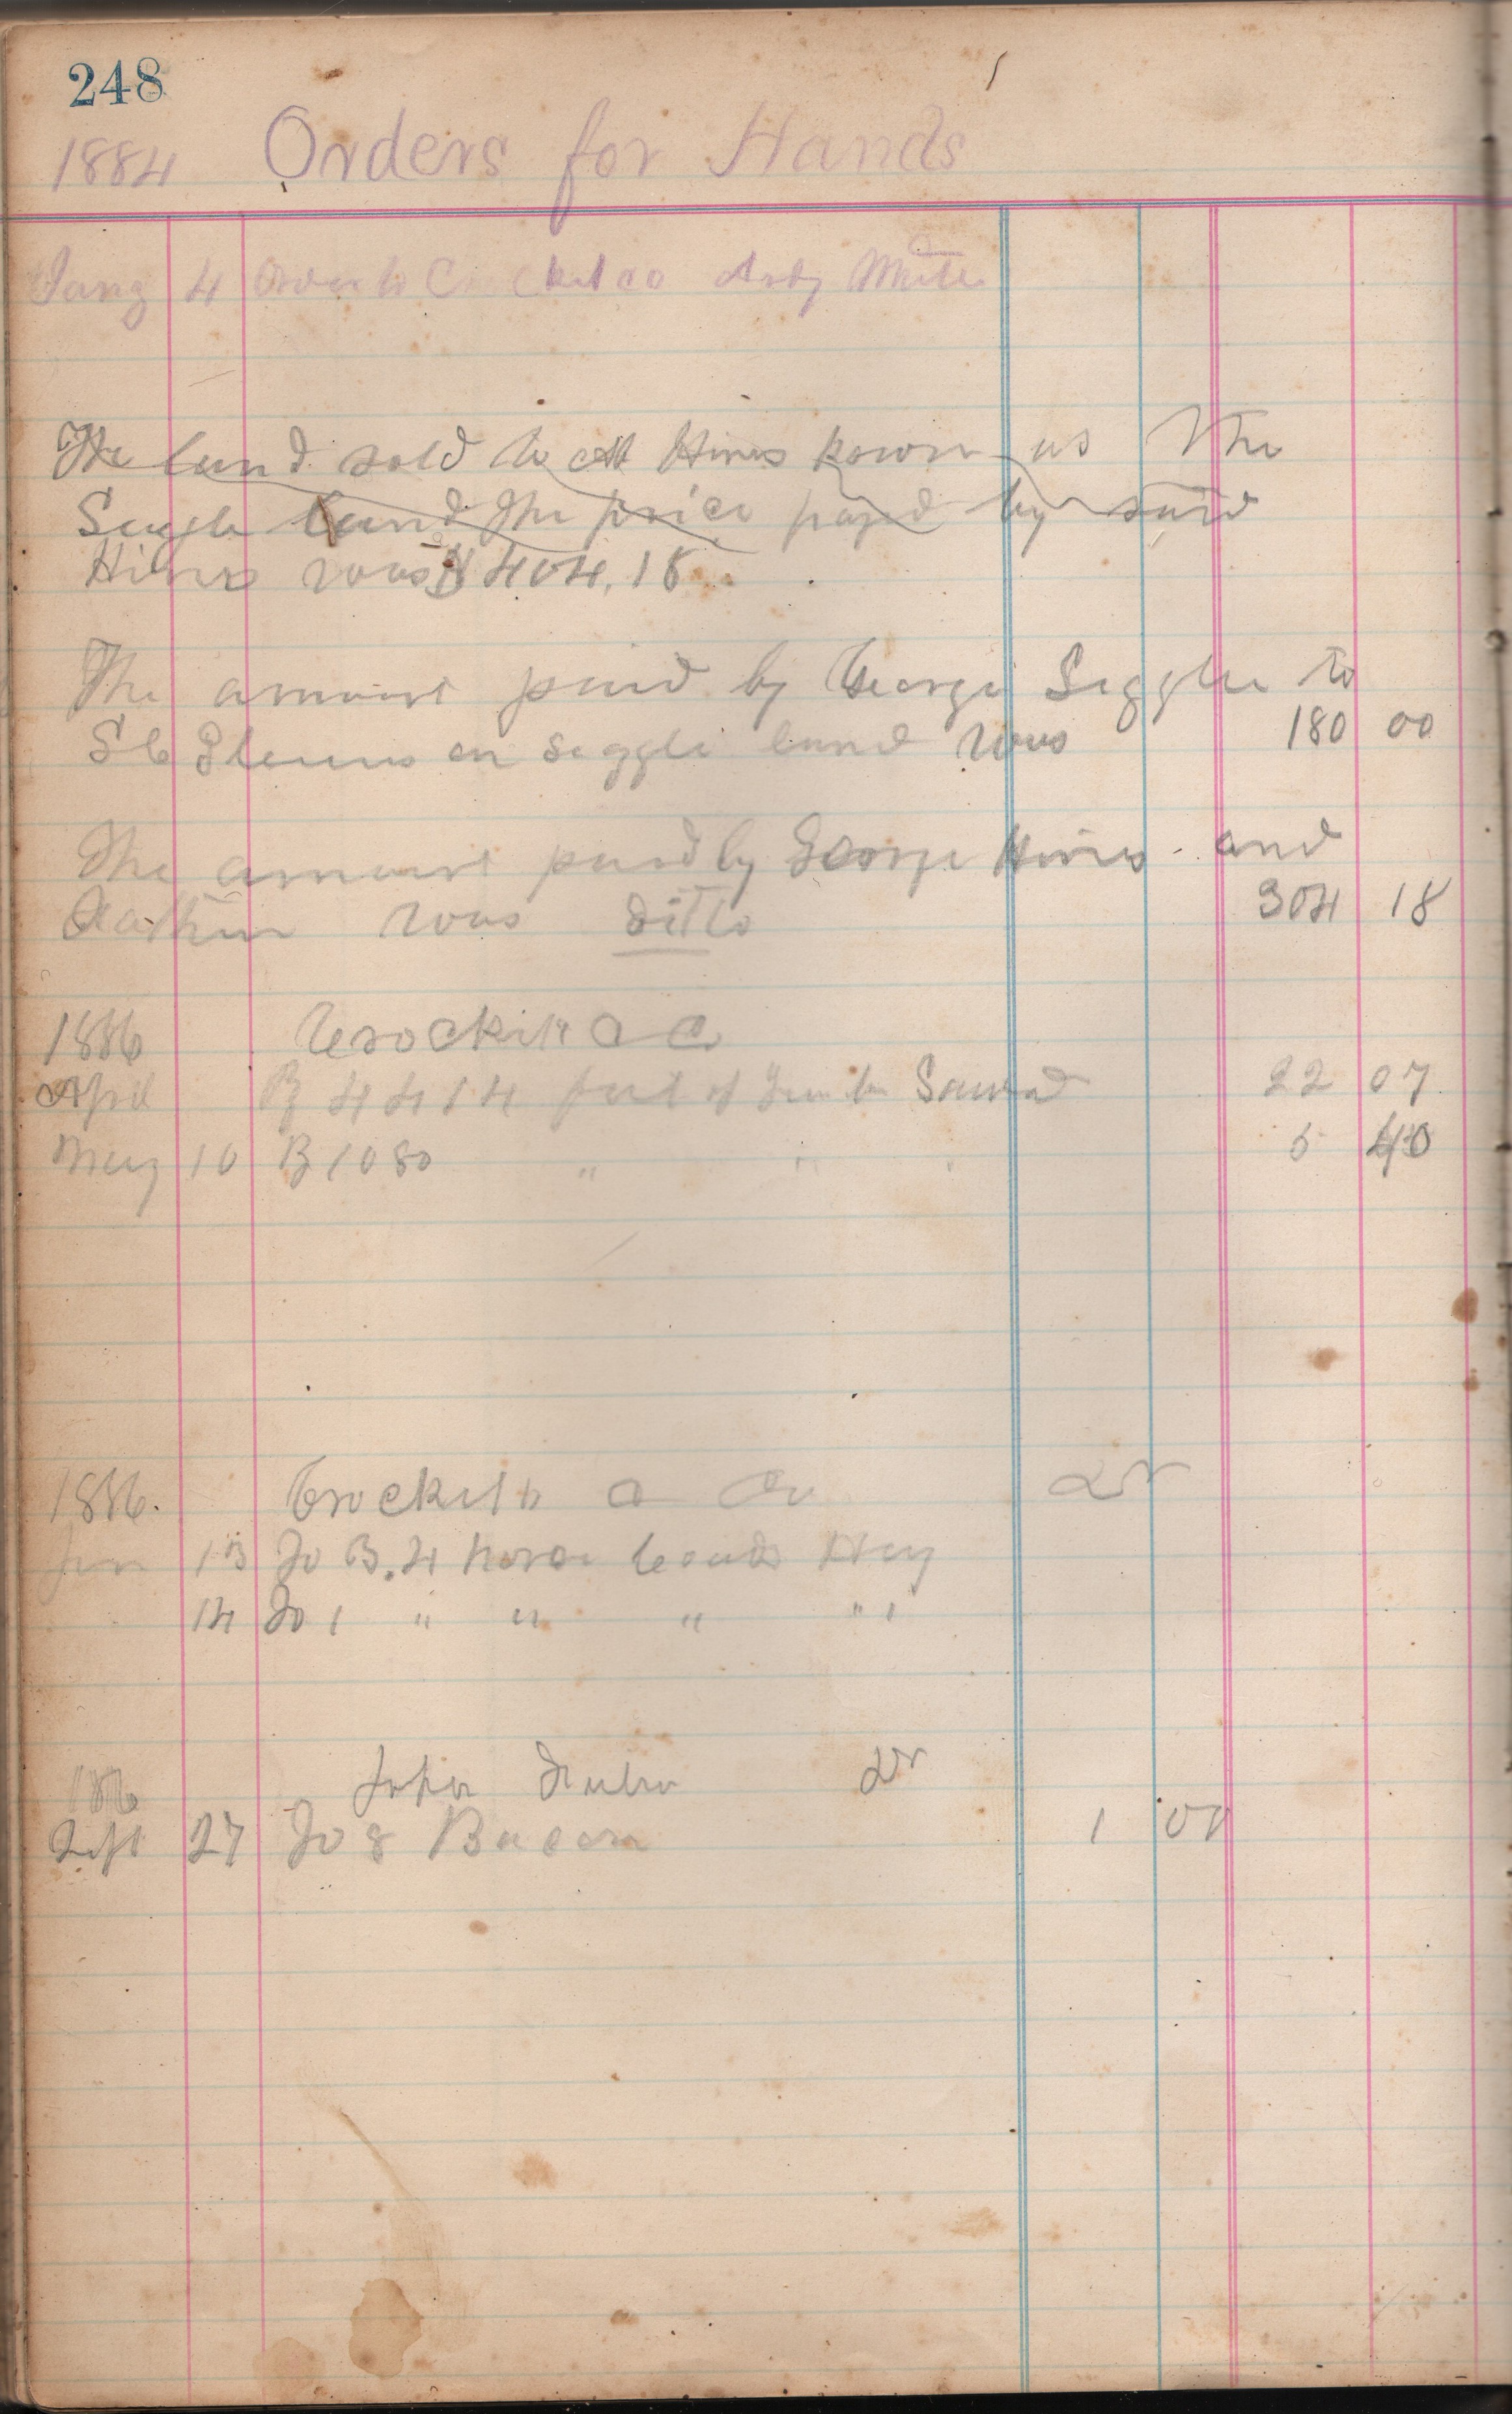 248
1884 Orders for Hands
4
The land sold to Hines kown as the
Seagle land The price payd by said
Hines was $404.18
The amount paid by George Seggle to
on Seggle land was 180 00
The amount paid by George Hines and
was ditto 304 18
1886 Crockitt a
April B 4414 feet of Sawed 22 07
May 10 B 1080 " " " 5 40
1886. Crockitt a Dr
13 To B. 4 horse loads Hay
14 To 1 " " " "
186 John Dr
Sept 27 To 8 Bacon 1 00